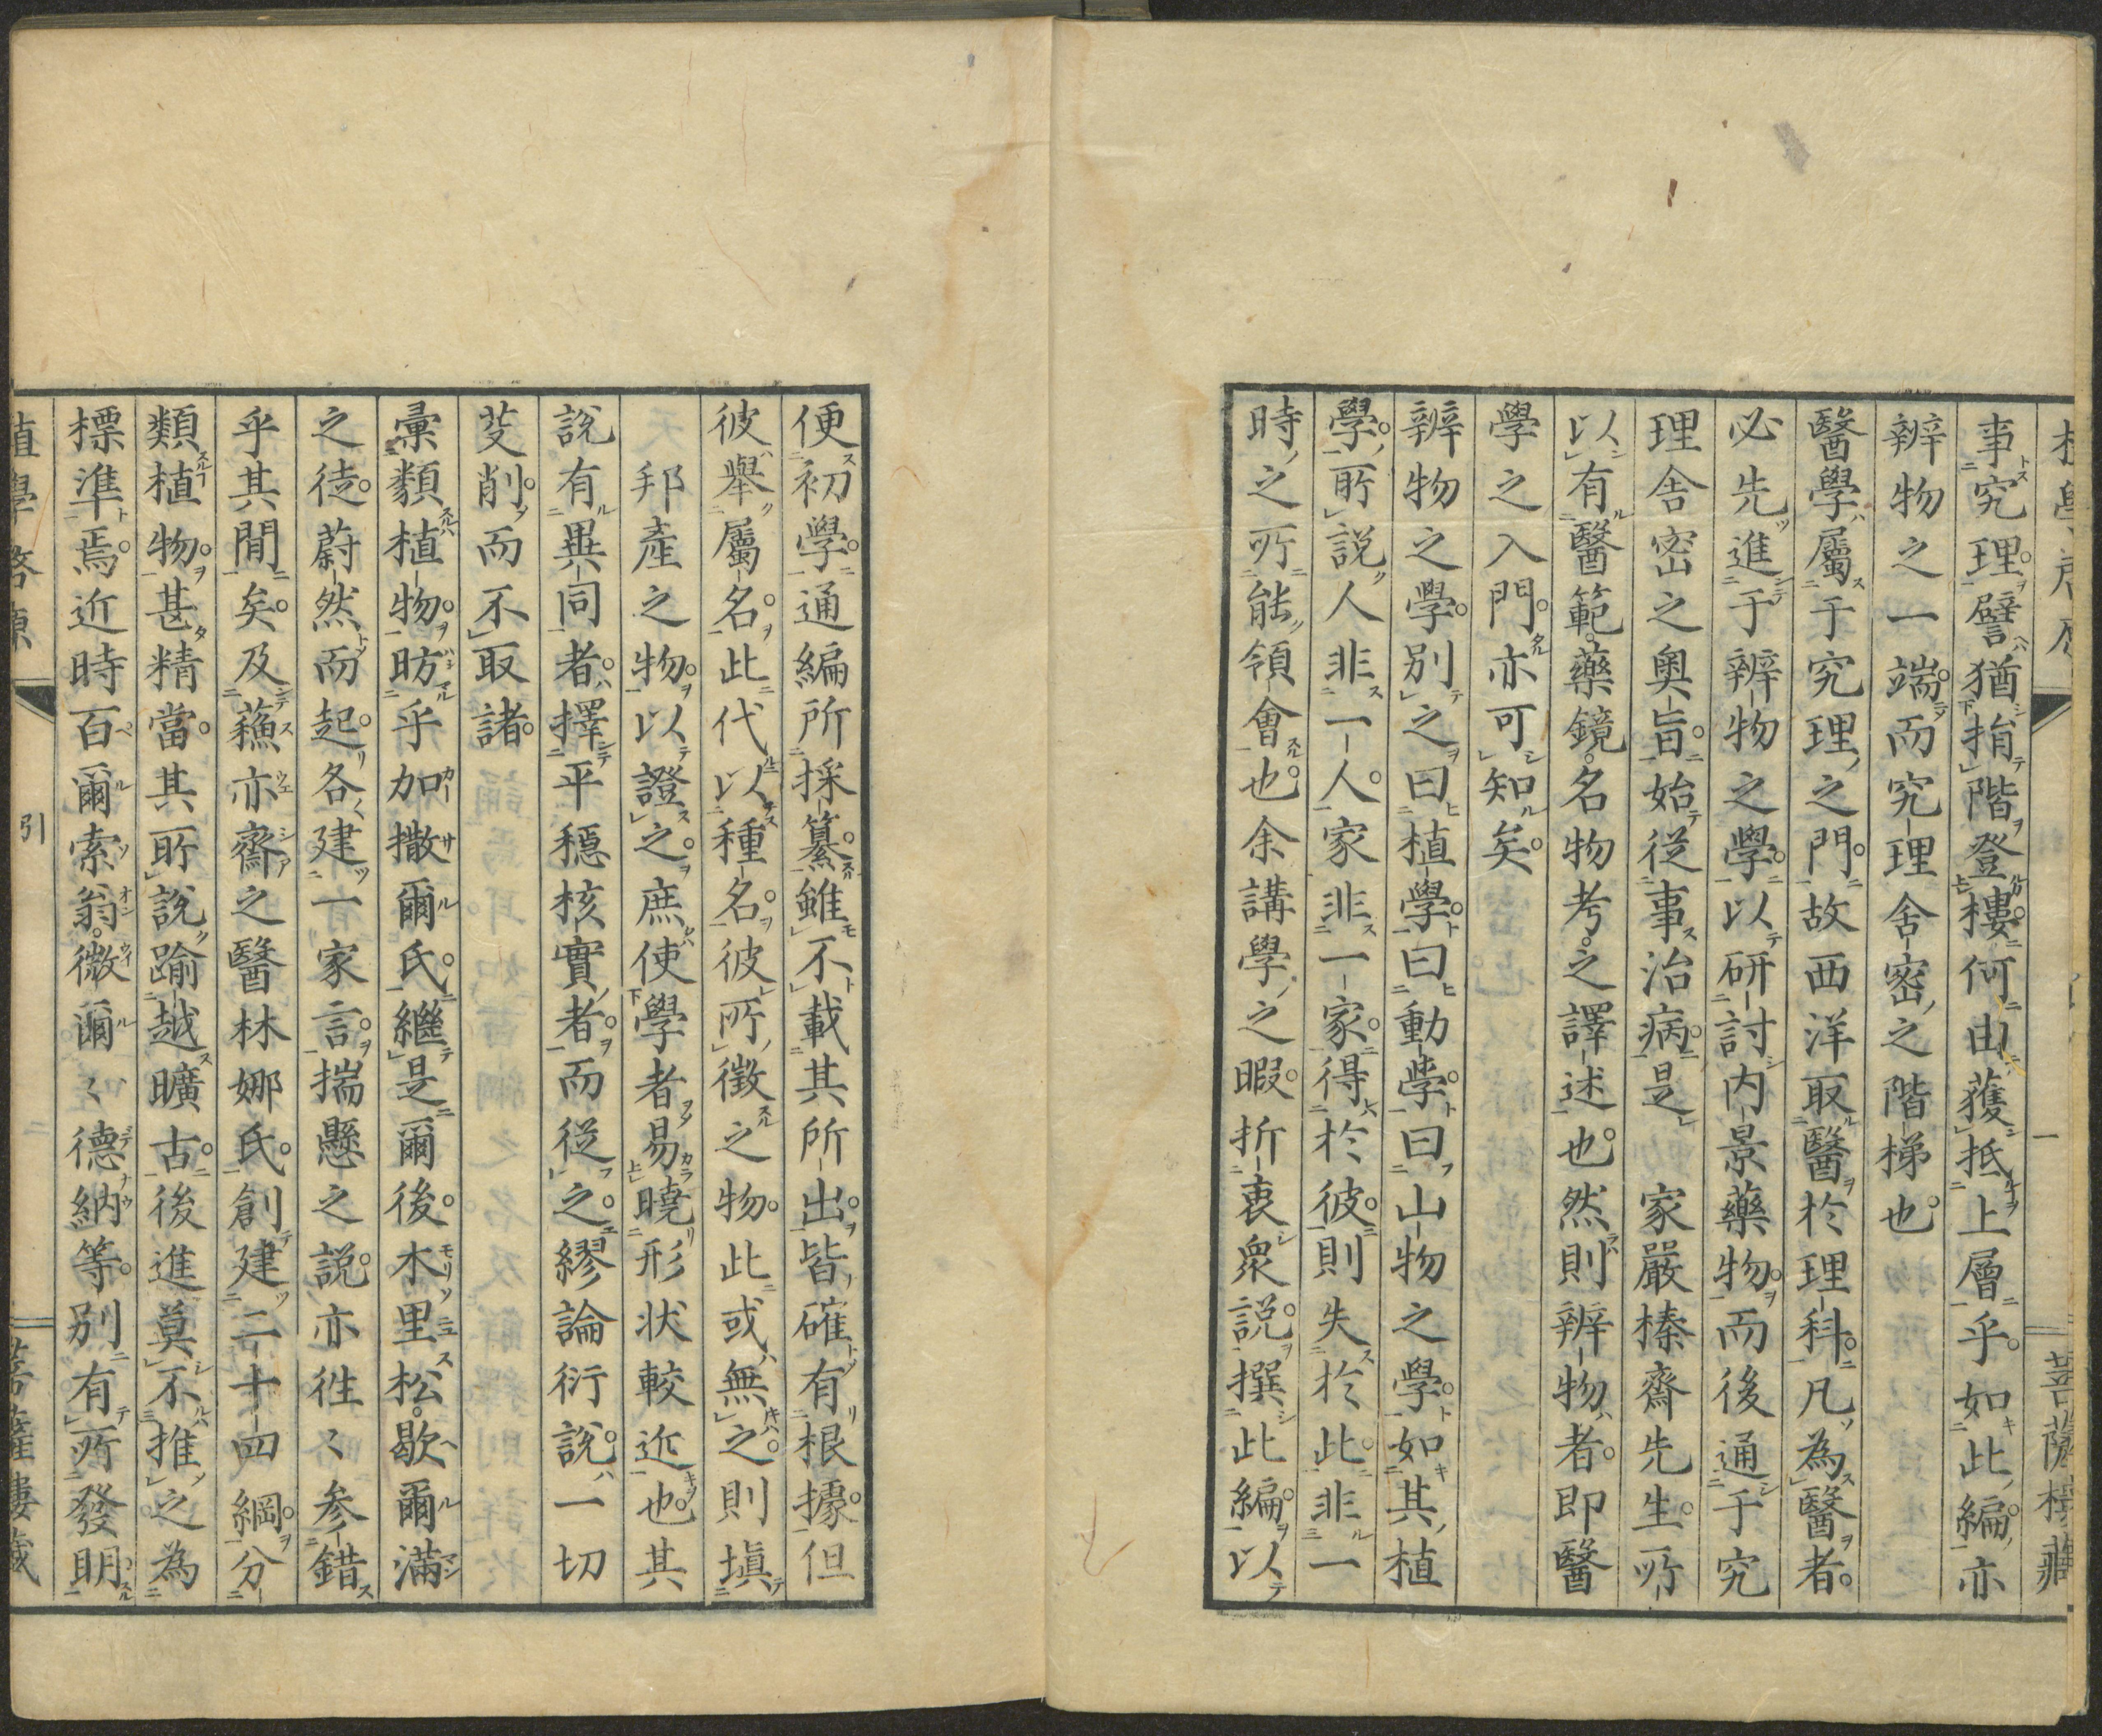 事究理譬猶揹階登樓何由獲抵上層乎如此編亦
辨物之一端而究理舍密之階梯也
醫學屬于究理之門故西洋取醫於理科凡為醫者
必先進于辨物之學以研討内景藥物而後通于究
理舍密之奥旨始從事治病是　家嚴榛齋先生所
以有醫範藥鏡名物考之譯述也然則辨物者即醫
學之入門亦可知矣
辨物之學別之曰植學曰動學曰山物之學如其植
學所說人非一人家非一家得於彼則失於此非一
時之所能領會也余講學之暇折衷衆説撰此編以
便初學通編所採纂雖不載其所出皆確有根據但
彼舉屬名此代以種名彼所徵之物此或無之則塡
邦產之物以證之庶使學者易曉形状較近也其
説有異同者擇平穩核實者而從之繆論衍説一切
芟削而不取諸
彙類植物昉乎加撒爾氏繼是爾後木里松歇爾滿
之徒蔚然而起各建一家言揣懸之説亦徃〻參錯
乎其間矣及蘓亦齋之醫林娜氏創建二十四綱分
類植物甚精當其所說踰越曠古後進莫不推之為
標準焉近時百爾索翁微爾〻德納等別有所發明
植學啓原
引
菩薩樓藏